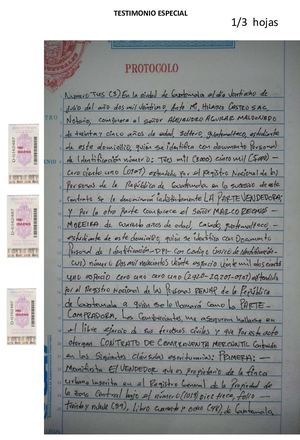 TESTIMONIO ESPECIAL
1/3 hojas
PROTOCOLO
Número Tres (3) En la ciudad de Guatemala el día veintiocho de
julio del año dos mil veintiuno, Ante Mí, CASTRO SAC,
Notario, comparece el señor ALEJANDRO AGUILAR MALDONADO
de treinta y cinco años de edad, soltero, guatemalteco, estudiante
de este domicilio, quien se identifica con documento Personal
de Identificación número: Tres mil (3000) cinco mil (5000)
cero ciento uno (0101) extendido por el Registro Nacional de las
Personas de la República de Guatemala en lo sucesivo de este
contrato se le denominará indistintamente LA PARTE VENDEDORA
y Por la otra Parte comparece el Señor MARCO
MOREIRA de cuarenta años de edad, casado, guatemalteco,
estudiante de este domicilio, quien se identifica con Documento
Personal de Identificación -DPI- con Código Único de Identificación
-CUI- número Dos mil espacio
uno espacio cero uno cero uno extendido
por el Registro Nacional de las Personas RENAP de la República
de Guatemala a quien se le llamará como LA PARTE
COMPRADORA, Los Comparecientes me aseguran hallarse en
el libre ejercicio de sus derechos civiles y que por este acto
otorgan CONTRATO DE COMPRAVENTA MERCANTIL contenido
en las Siguientes cláusulas escriturarias: PRIMERA:
Manifiesta EL VENDEDOR que es propietario de la finca
urbana inscrita en el Registro General de la Propiedad de
la Zona Central bajo el número folio
treinta y nueve (39), libro cuarenta y ocho (48) de Guatemala